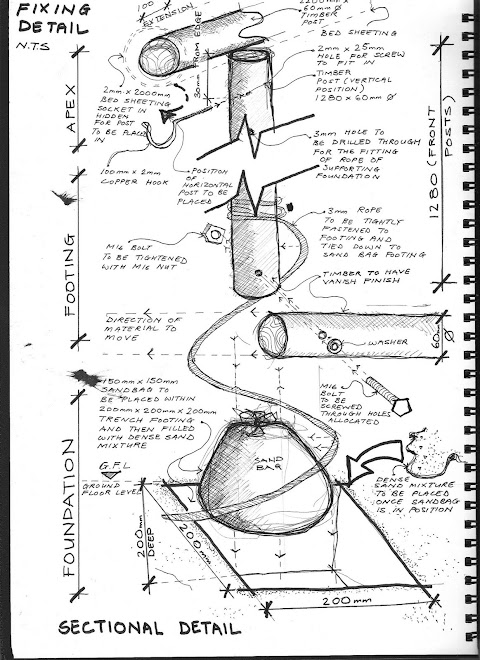 FIXING
DETAIL
N.T.S
100mm
EXTENSION
30mm FROM EDGE
60mm Ø
TIMBER
POST
BED SHEETING
2mm x 25mm
HOLE FOR SCREW
TO FIT IN
TIMBER
POST (VERTICAL
POSITION)
1280 x 60mm Ø
2mm x 2000mm
BED SHEETING
SOCKET IN
HIDDEN
FOR POST
TO BE PLACED
IN
APEX
1280 (FRONT
POSTS)
3mm HOLE TO
BE DRILLED THROUGH
FOR THE FITTING
OF ROPE OF
SUPPORTING
FOUNDATION
100mm x 2mm
COPPER HOOK
POSITION
OF
HORIZONTAL
POST TO BE
PLACED
3mm ROPE
TO BE TIGHTLY
FASTENED TO
FOOTING AND
TIED DOWN TO
SAND BAG FOOTING
FOOTING
M16 BOLT
TO BE TIGHTENED
WITH M16 NUT
TIMBER TO HAVE
VANISH FINISH
DIRECTION OF
MATERIAL TO
MOVE
WASHER
60mm
Ø
150mm x 150mm
SANDBAG TO
BE PLACED WITHIN
200mm x 200mm x 200mm
TRENCH FOOTING
AND THEN FILLED
WITH DENSE SAND
MIXTURE
M16
BOLT
TO BE
SCREWED
THROUGH HOLES
ALLOCATED
SAND
BAG
G.F.L
GROUND
FLOOR LEVEL
DENSE
SAND MIXTURE
TO BE PLACED
ONCE SANDBAG
IS IN POSITION
FOUNDATION
200mm
DEEP
200mm
200mm
SECTIONAL DETAIL